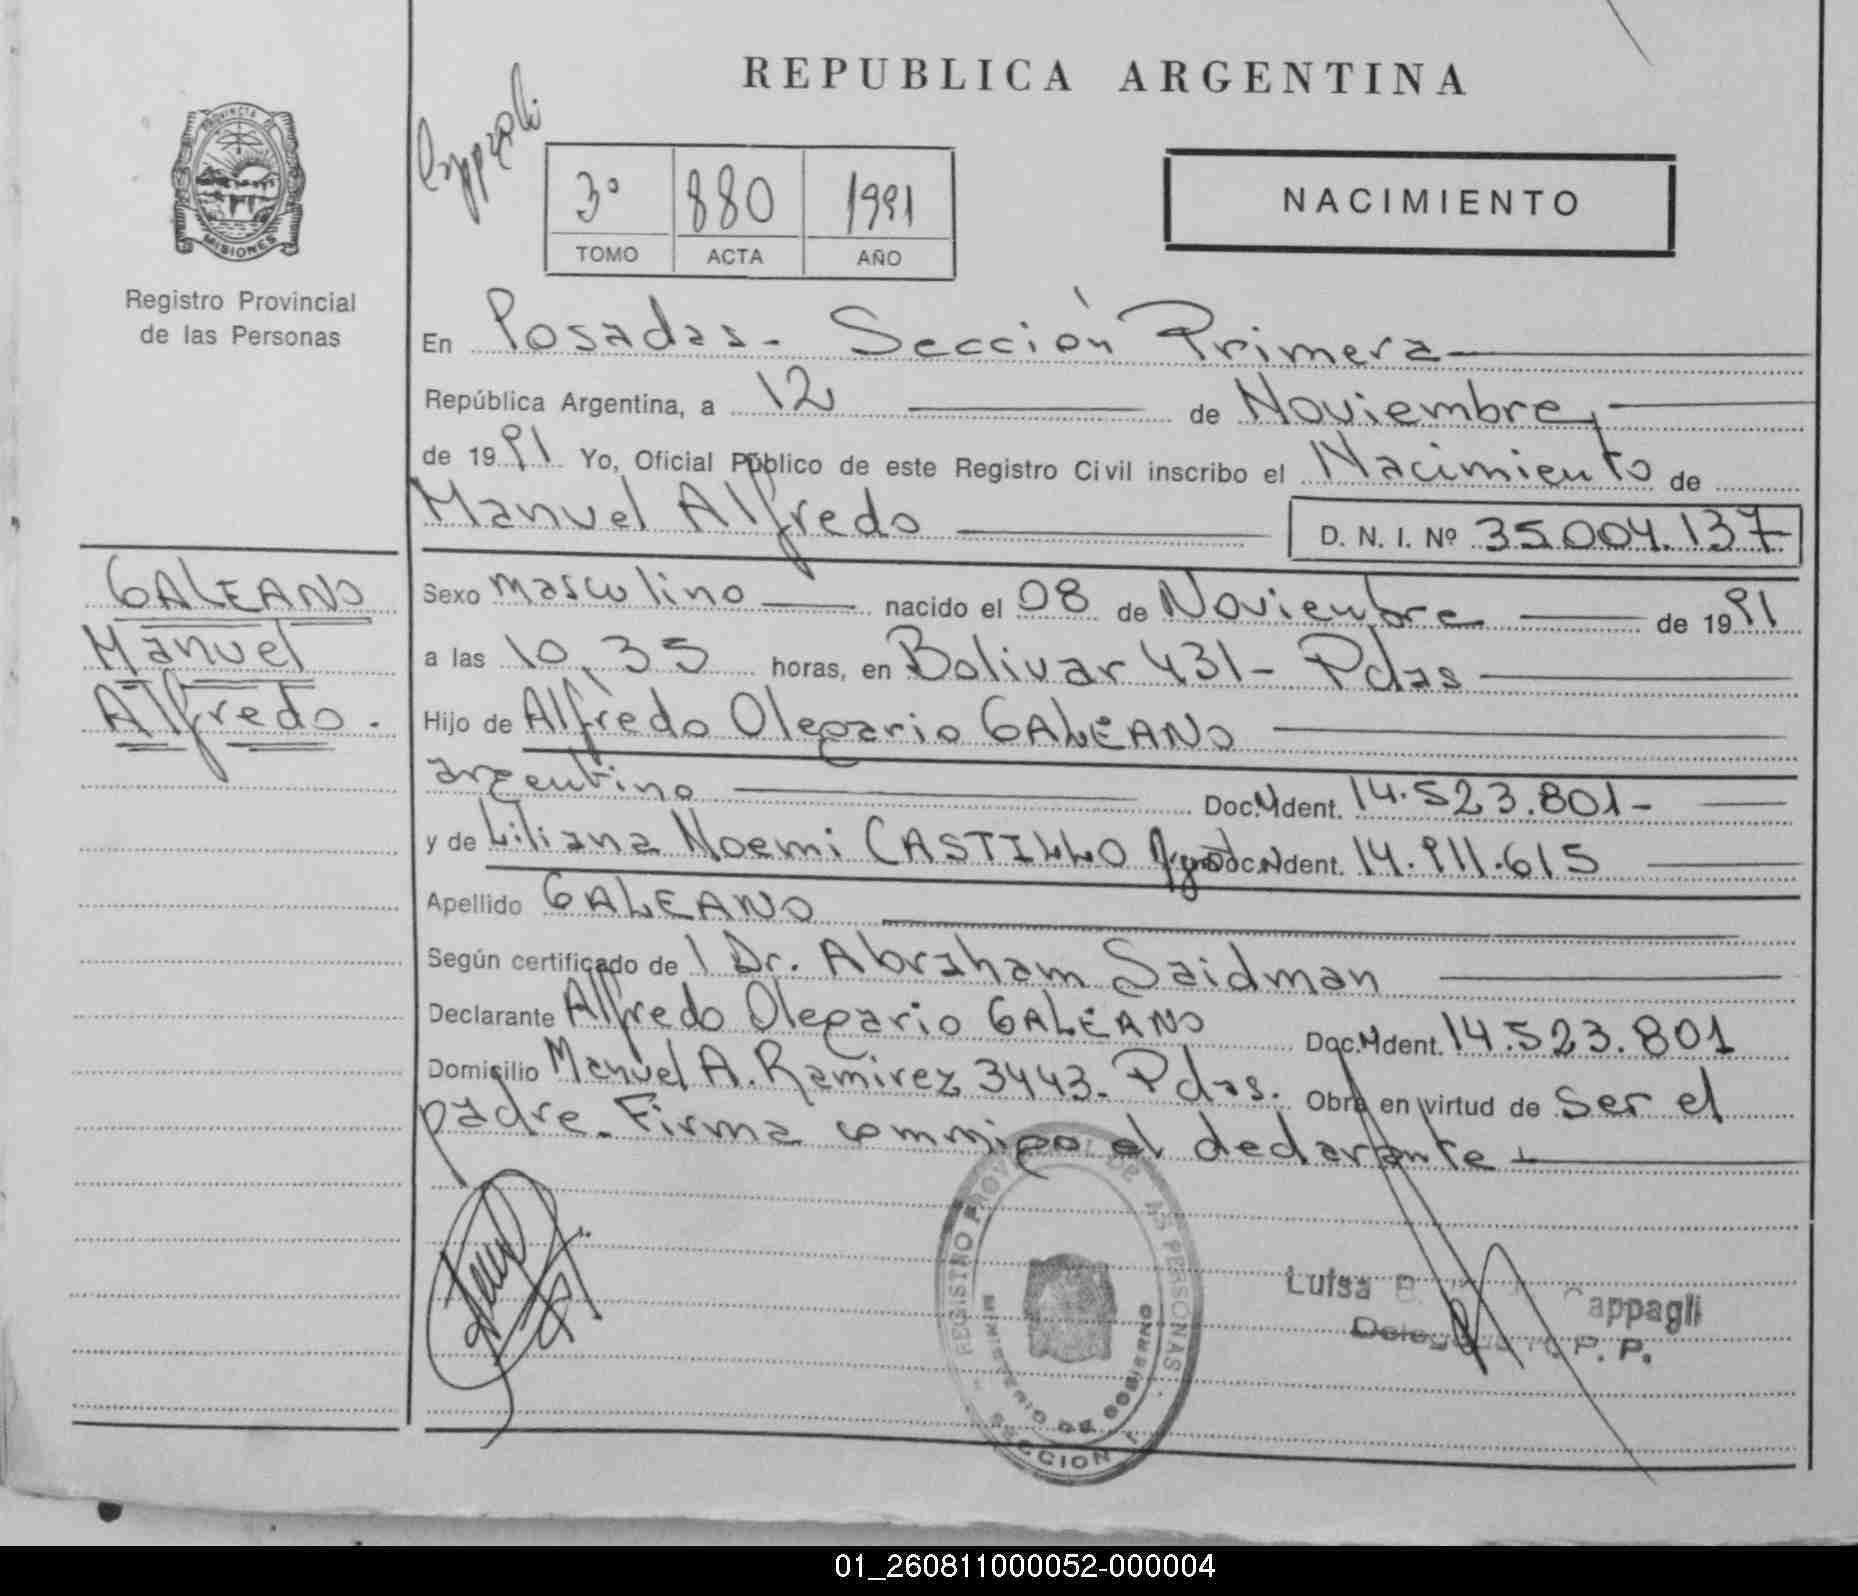 REPUBLICA ARGENTINA
PROVINCIA DE MISIONES
Registro Provincial
de las Personas
Cappagli
3º 880 1991
TOMO ACTA AÑO
NACIMIENTO
En Posadas - Sección Primera
República Argentina, a 12 de Noviembre,
de 1991 Yo, Oficial Público de este Registro Civil inscribo el Nacimiento de
Manuel Alfredo D. N. I. Nº 35.004.137
GALEANO
Manuel
Alfredo.
Sexo masculino nacido el 08 de Noviembre de 1991
a las 10,35 horas, en Bolivar 431- Pdas
Hijo de Alfredo Olegario GALEANO
argentino Doc. Ident. 14.523.801-
y de Liliana Noemi CASTILLO Doc. Ident. 14.911.615
Apellido GALEANO
Según certificado de l Dr. Abraham Saidman
Declarante Alfredo Olegario GALEANO Doc. Ident. 14.523.801
Domicilio Manuel A. Ramirez 3443- Pdas. Obra en virtud de ser el
padre. Firma conmigo el declarante
REGISTRO PROVINCIAL DE LAS PERSONAS
MINISTERIO DE GOBIERNO
SECCION 1
Luisa Cappagli
R. P. P.
01_260811000052-000004